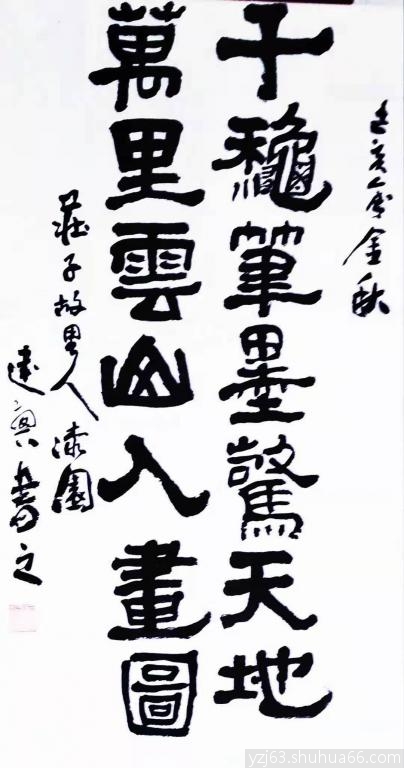 己亥年金秋
千龝筆墨驚天地
萬里雲山入畫圖
莊子故里人漆園
達書之
yzj63.shuhua66.com